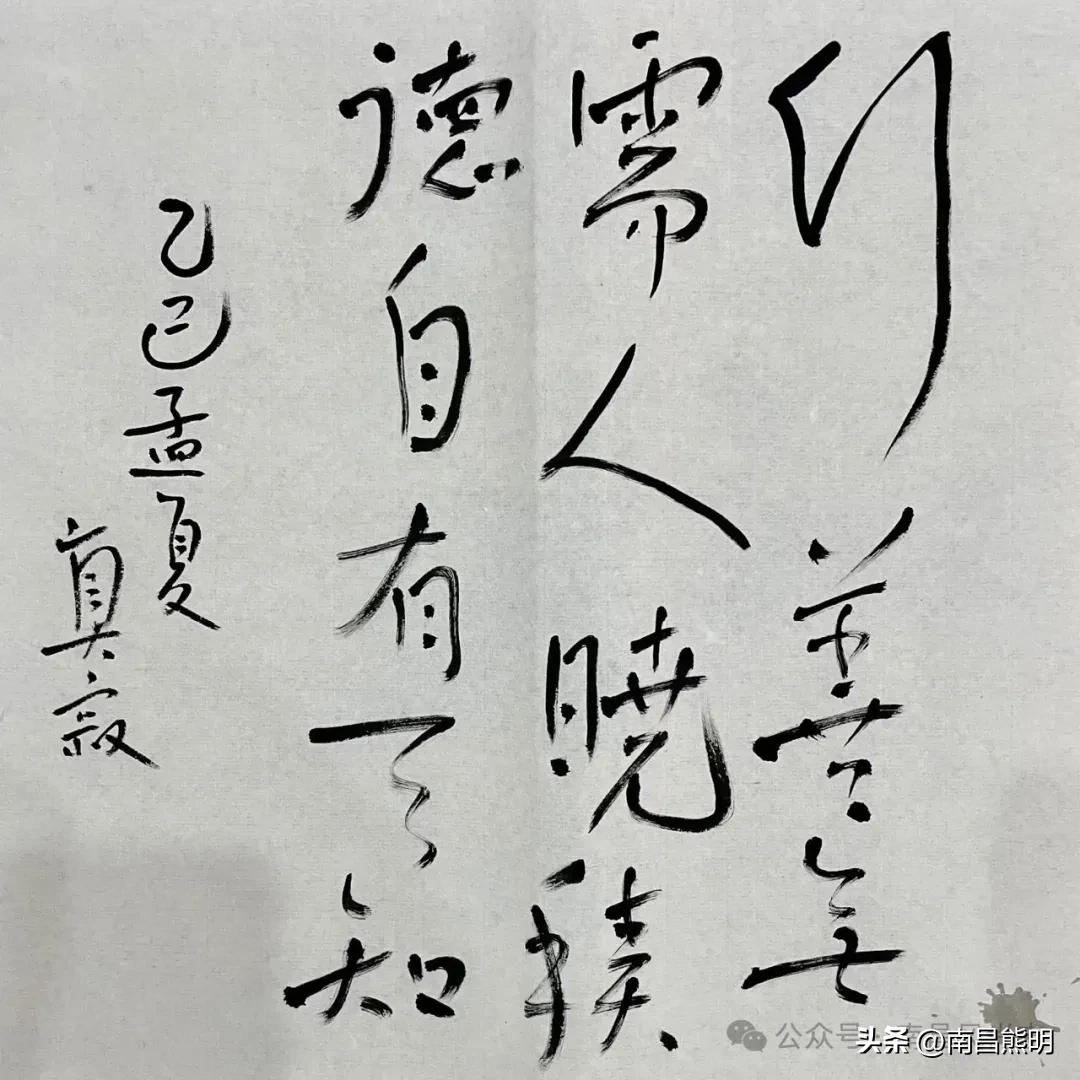 行善無
需人曉積
德自有天知
乙巳孟夏
真寂
公众号
头条 @南昌熊明